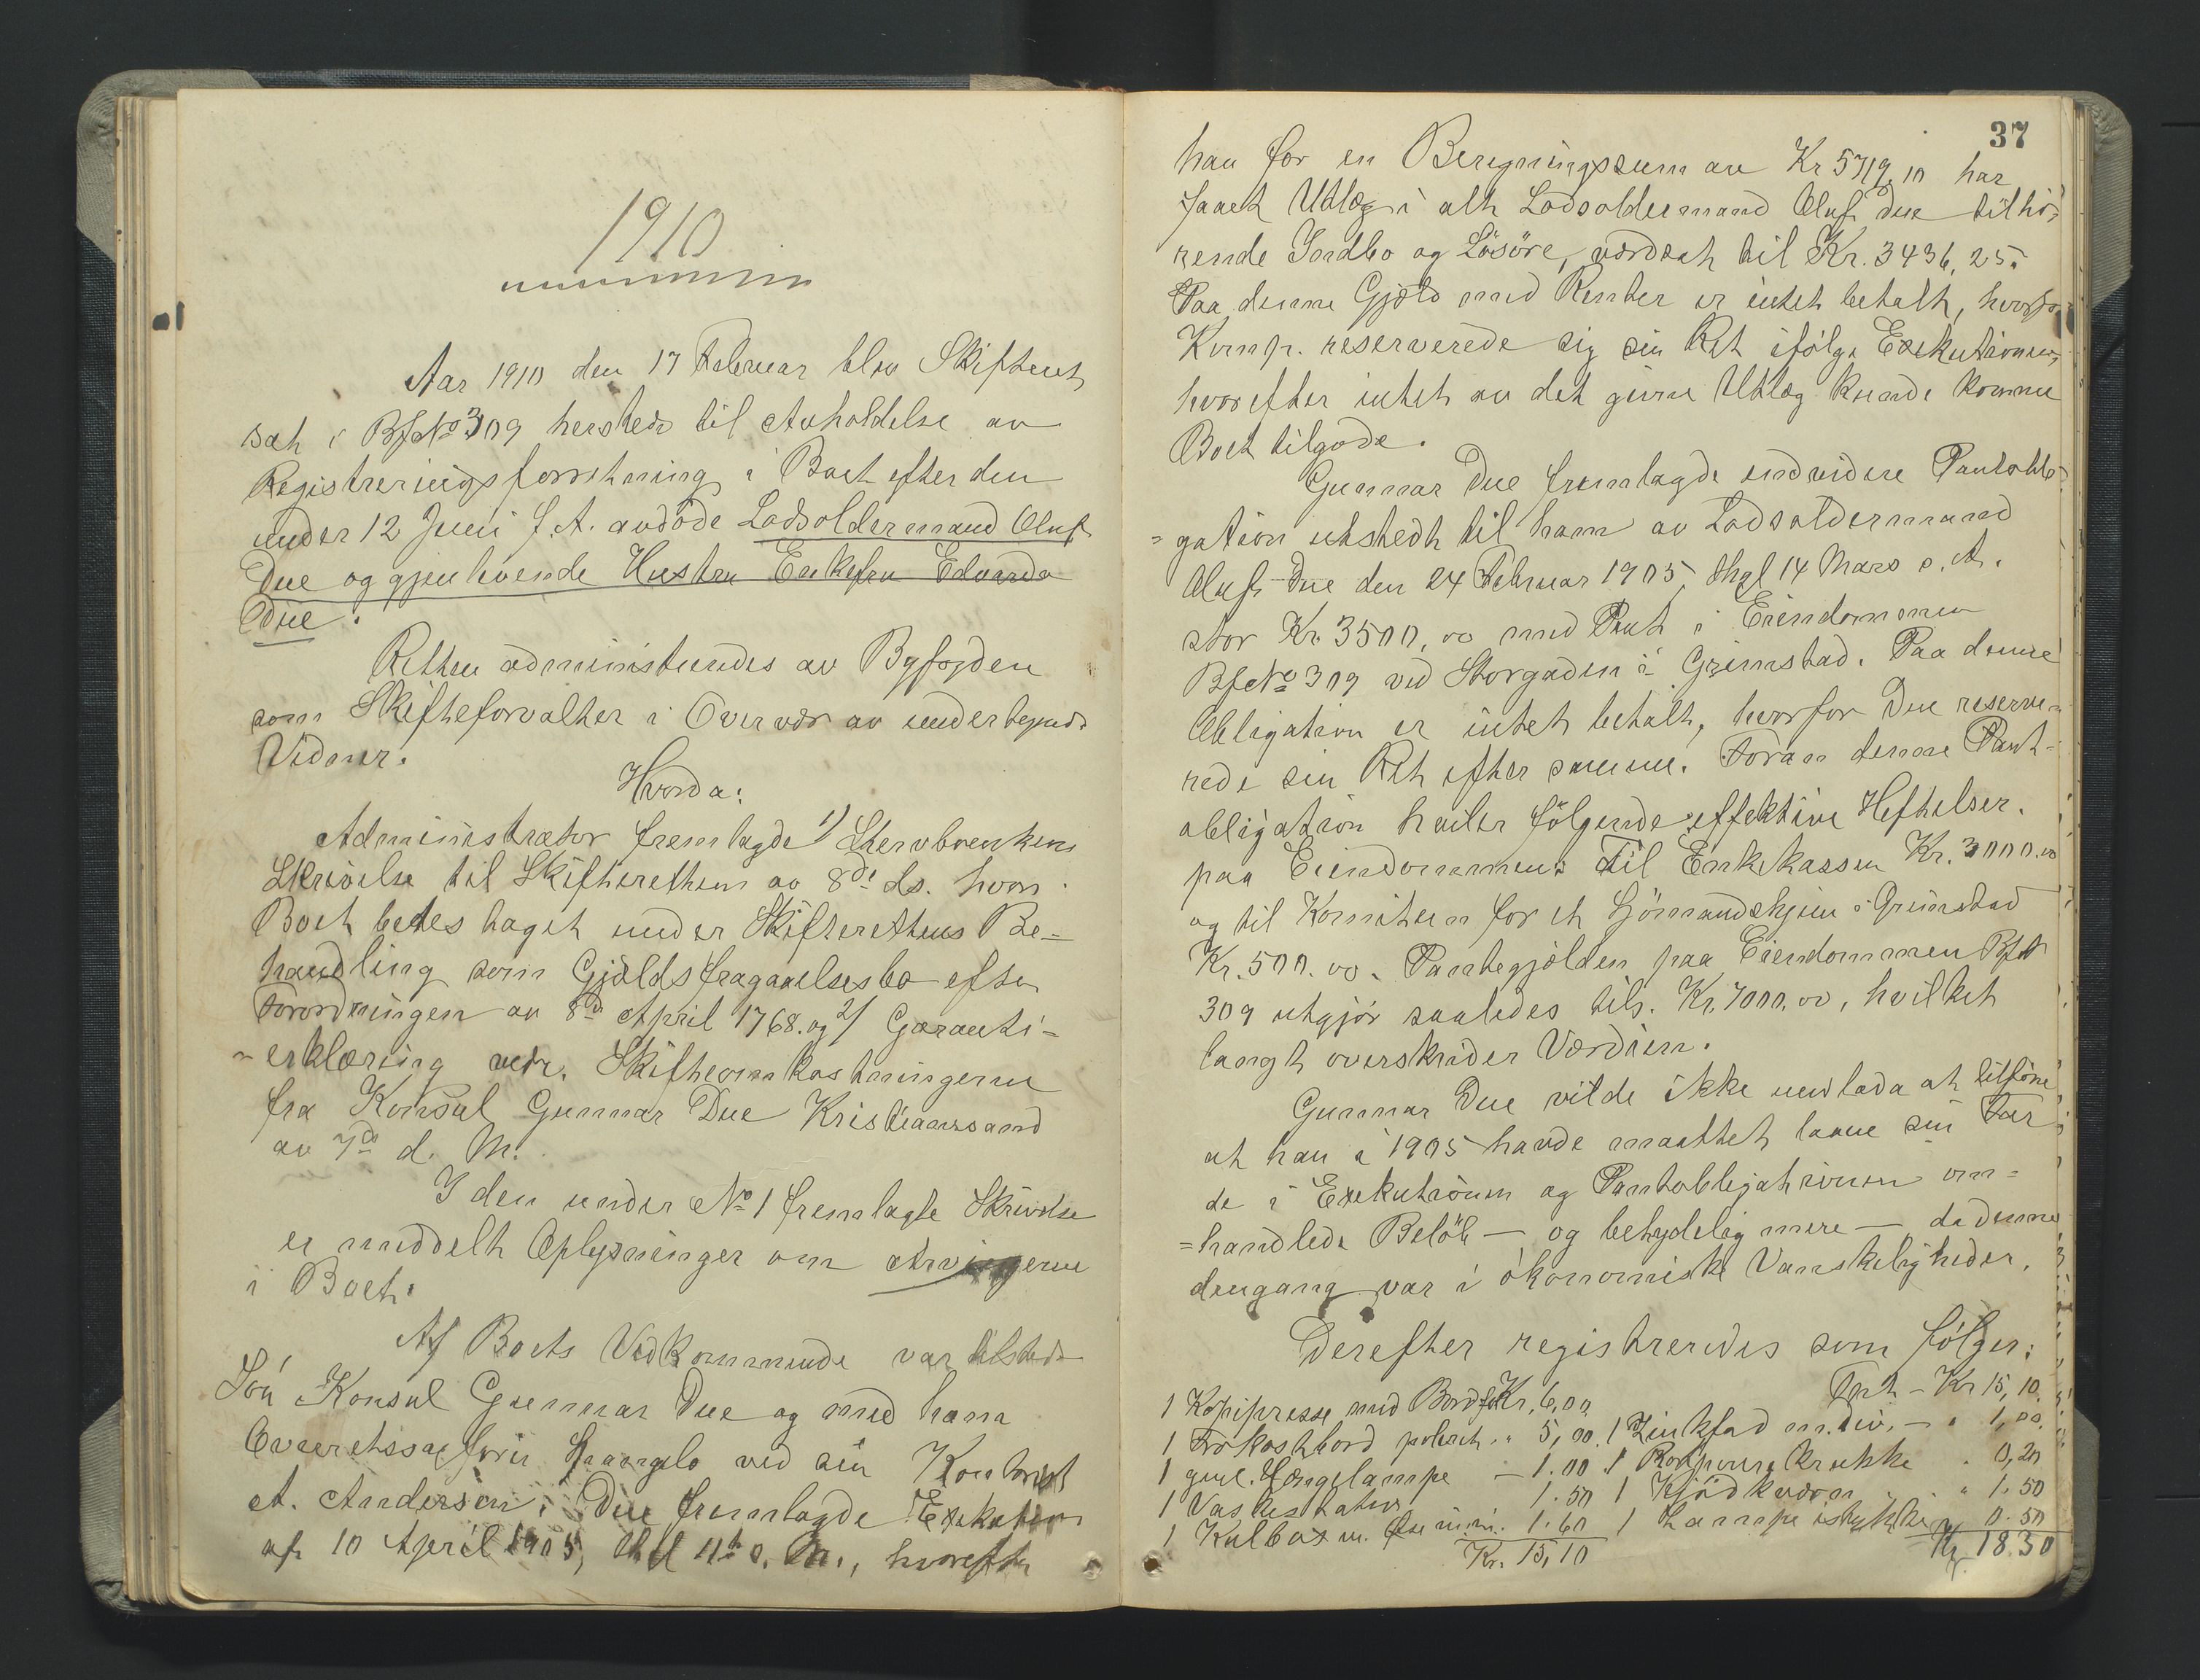 1910
Aar 1910 den 17 Februar blev Skifteret
sat i BfNo 309 hersteds til Avholdelse av
Registreringsforretning i Boet efter den
under 12 Juni f.A. avdöde Lodsoldermand Oluf
Due og gjenlevende Hustru Enkefru Edvarda
Due.
Retten administreredes av Byfogden
som Skifteforvalter i Overvær av undertegnede
Vidner.
Hvorda:
Administrator fremlagde 1) Stervboenkens
Skrivelse til Skifteretten av 8de ds. hvori
Boet bedes taget under Skifterettens Be-
handling som Gjældsfragaaelsesbo efter
Forordningen av 8de April 1768. og 2) Garanti-
=erklæring vedr. Skifteomkostningerne
fra Konsul Gunnar Due Kristianssand
av 7de d. M.
I den under No 1 fremlagte Skrivelse
er meddelt Oplysninger om Arvingerne
i Boet.
Af Boets Vedkommende var tilstede
Sön Konsul Gunnar Due og med ham
Overretssagförer ved sin Kontorist
A. Andersen. Due fremlagde Exekution
af 10 April 1905, thgl 11te s. M., hvorefter
37
han for en Beregningssum av Kr 5719,10 har
faaet Utlæg i alt Lodsoldermand Oluf Due tilhö-
rende Indbo og Lösöre, værdsat til Kr. 3436,25.
Paa denne Gjæld med Renter er intet betalt, hvorfor
Komp. reserverede sig sin Ret ifölge Exekutionen,
hvorefter intet av det givne Utlæg kunde komme
Boet tilgode.
Gunnar Due fremlagde endvidere Pantobli-
=gation utstedt til ham av Lodsoldermand
Oluf Due den 24 Februar 1905, thgl 14 Mars s. A.
stor Kr. 3500,00 med Pant i Eiendommen
BfNo 309 ved Storgaden i Grimstad. Paa denne
Obligation er intet betalt, hvorfor Due reserve-
rede sin Ret efter samme. Foran denne Pant-
obligation heiler fölgende effektive Heftelser.
paa Eiendommen: Til Enkekassen Kr. 3000.00
og til Komiteen for et Sjömandshjem i Grimstad
Kr. 500.00. Pantegjælden paa Eiendommen BfN
309 utgjör saaledes tils. Kr. 7000,00, hvilket
langt overskrider Værdien.
Gunnar Due vilde ikke undlade at tilföie
at han i 1905 havde maattet laane sin Far
de i Exekutionen og Pantobligationen om-
=handlede Belöb – og betydelig mere – da denne
dengang var i ökonomiske Vanskeligheder.
Derefter registreredes som fölger:
1 Kopipresse med Bord Kr. 6,00
1 Frokostbord poleret " 5,00
1 gml. Hængelampe – 1.00
1 Vaskestativ 1.50
1 Kulbox m. 1.60
Kr. 15,10
Trsp – Kr 15,10
1 Zinkfad m. div. – " 1,00
1 Krukke " 0,20
1 Kjödkværn " 1.50
1 Lampe istykker 0.50
Kr. 18.30